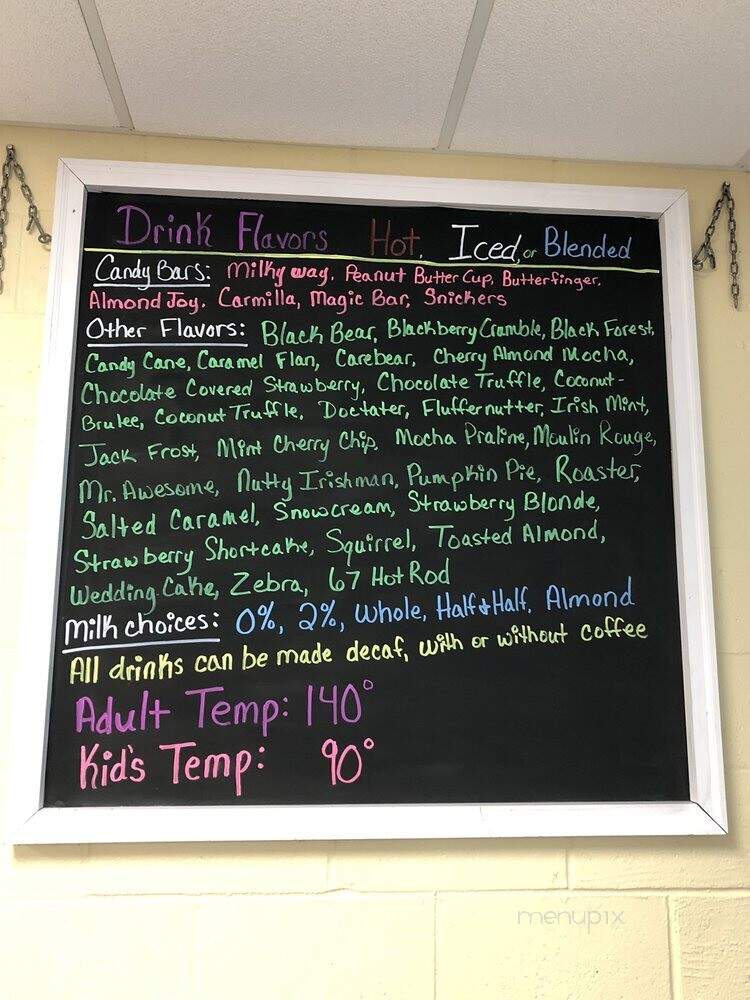 Drink Flavors Hot, Iced, or Blended
Candy Bars: Milky way, Peanut Butter Cup, Butterfinger,
Almond Joy, Carmilla, Magic Bar, Snickers
Other Flavors: Black Bear, Blackberry Crumble, Black Forest,
Candy Cane, Caramel Flan, Carebear, Cherry Almond Mocha,
Chocolate Covered Strawberry, Chocolate Truffle, Coconut-
Brulee, Coconut Truffle, Doctater, Fluffernutter, Irish Mint,
Jack Frost, Mint Cherry Chip, Mocha Praline, Moulin Rouge,
Mr. Awesome, Nutty Irishman, Pumpkin Pie, Roaster,
Salted Caramel, Snowcream, Strawberry Blonde,
Strawberry Shortcake, Squirrel, Toasted Almond,
Wedding Cake, Zebra, 67 Hot Rod
Milk choices: 0%, 2%, Whole, Half & Half, Almond
All drinks can be made decaf, with or without coffee
Adult Temp: 140°
Kid's Temp: 90°
menupix